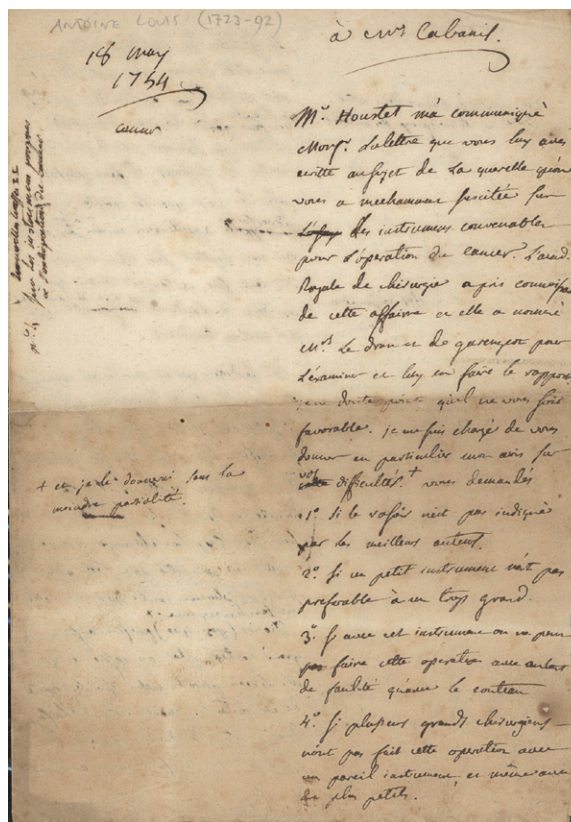 ANTOINE LOUIS (1723-92)
18 may
1754
cancer
à Mrs Cabanis.
Mr. Houstet m'a communiqué
Monsr. la lettre que vous luy avés
écritte au sujet de la querelle qu'on
vous a mechamment suscitée sur
les instrumens convenables
pour l'operation du cancer. L'acad.
Royale de chirurgie a pris connoissance
de cette affaire et elle a nommé
Mrs. Le dran et de garengeot pour
l'examiner et luy en faire le rapport
je ne doute point qu'il ne vous soit
favorable. je me suis chargé de vous
donner en particulier mon avis sur
vos difficultés. + vous demandés
+ et je le donnerai sans la
moindre partialité.
1o. si le rasoir n'est pas indiqué
par les meilleurs auteurs.
2o. si un petit instrument n'est pas
preferable à un trop grand.
3o. si avec cet instrument on ne peut
pas faire cette operation avec autant
de facilité qu'avec le couteau
4o. si plusieurs grands chirurgiens
n'ont pas fait cette operation avec
un pareil instrument, et même avec
de plus petits.
sur les instrumens proposés
à l'extirpation du cancer